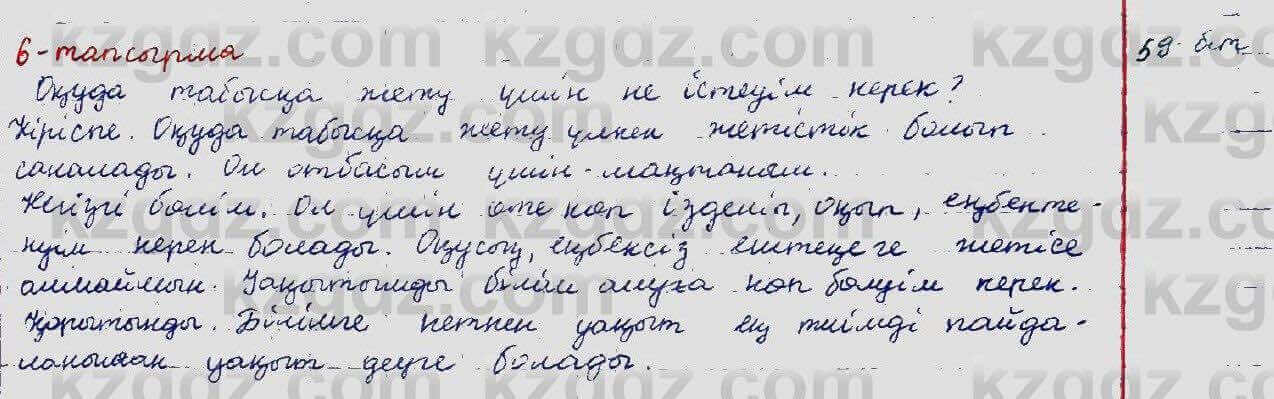 6-тапсырма
59 бет
Оқуда табысқа жету үшін не істеуім керек?
Кіріспе. Оқуда табысқа жету үлкен жетістік болып
саналады. Ол отбасым үшін мақтаныш.
Негізгі бөлім. Ол үшін өте көп ізденіп, оқып, еңбекте-
нуім керек болады. Оқусыз, еңбексіз ештеңеге жетісе
алмаймын. Уақытымды білім алуға көп бөлуім керек.
Қорытынды. Білімге кеткен уақыт ең тиімді пайда-
ланылған уақыт деуге болады.
kzgdz.com